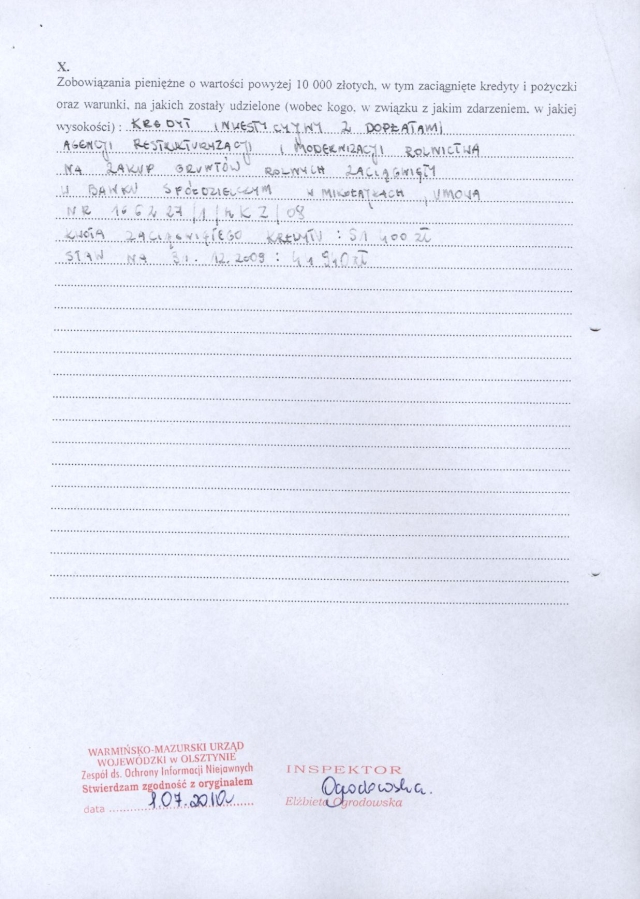 X.
Zobowiązania pieniężne o wartości powyżej 10 000 złotych, w tym zaciągnięte kredyty i pożyczki
oraz warunki, na jakich zostały udzielone (wobec kogo, w związku z jakim zdarzeniem, w jakiej
wysokości) : KREDYT INWESTYCYJNY Z DOPŁATAMI
AGENCJI RESTRUKTURYZACJI I MODERNIZACJI ROLNICTWA
NA ZAKUP GRUNTÓW ROLNYCH ZACIĄGNIĘTY
W BANKU SPÓŁDZIELCZYM W MIKOŁAJKACH, UMOWA
NR 166427/1/KZ/08
KWOTA ZACIĄGNIĘTEGO KREDYTU : 51 400 zł
STAN NA 31.12.2009 : 41 940 zł
WARMIŃSKO-MAZURSKI URZĄD
WOJEWÓDZKI w OLSZTYNIE
Zespół ds. Ochrony Informacji Niejawnych
Stwierdzam zgodność z oryginałem
data .07.2010
INSPEKTOR
Ogrodowska.
Elżbieta Ogrodowska